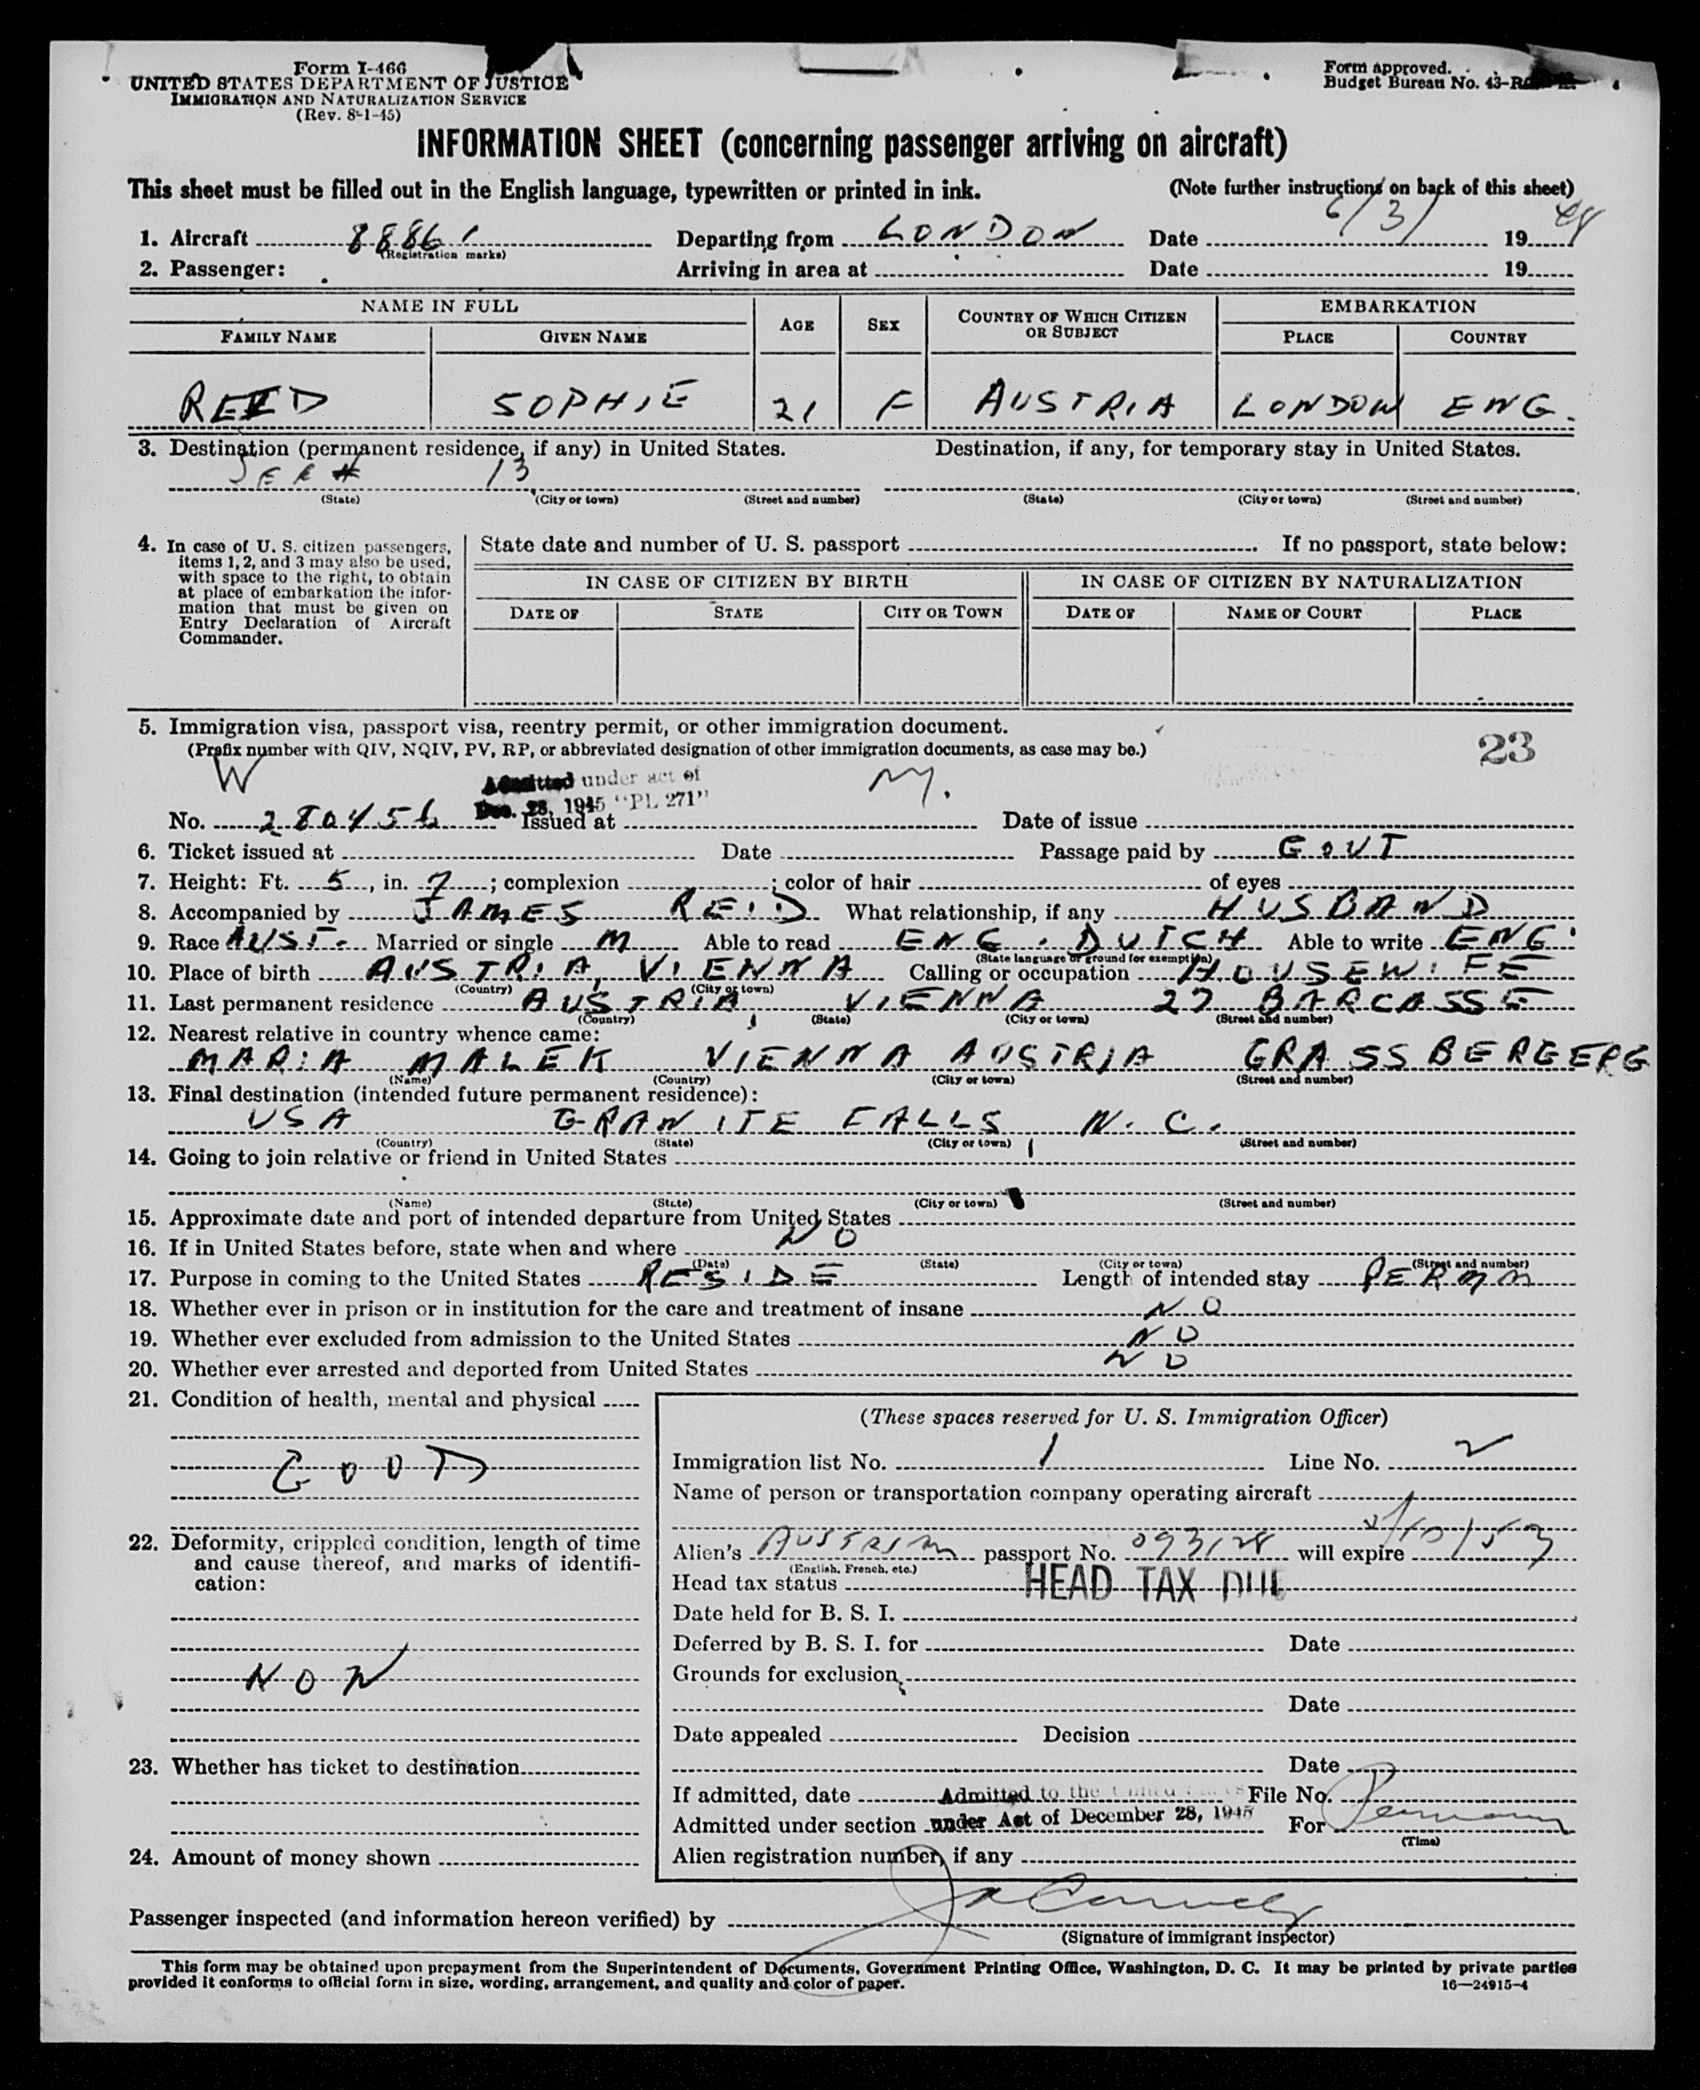 Form I-466
UNITED STATES DEPARTMENT OF JUSTICE
IMMIGRATION AND NATURALIZATION SERVICE
(Rev. 8-1-45)
Form approved.
Budget Bureau No. 43-
INFORMATION SHEET (concerning passenger arriving on aircraft)
This sheet must be filled out in the English language, typewritten or printed in ink. (Note further instructions on back of this sheet)
1. Aircraft 88861 Departing from LONDON Date 6/3/ 1948
(Registration marks)
2. Passenger: Arriving in area at Date 19
NAME IN FULL AGE SEX COUNTRY OF WHICH CITIZEN OR SUBJECT EMBARKATION
FAMILY NAME GIVEN NAME PLACE COUNTRY
REID SOPHIE 21 F AUSTRIA LONDON ENG.
3. Destination (permanent residence, if any) in United States. Destination, if any, for temporary stay in United States.
SEE # 13
(State) (City or town) (Street and number) (State) (City or town) (Street and number)
4. In case of U. S. citizen passengers, items 1, 2, and 3 may also be used, with space to the right, to obtain at place of embarkation the information that must be given on Entry Declaration of Aircraft Commander.
State date and number of U. S. passport If no passport, state below:
IN CASE OF CITIZEN BY BIRTH IN CASE OF CITIZEN BY NATURALIZATION
DATE OF STATE CITY OR TOWN DATE OF NAME OF COURT PLACE
5. Immigration visa, passport visa, reentry permit, or other immigration document.
(Prefix number with QIV, NQIV, PV, RP, or abbreviated designation of other immigration documents, as case may be.)
23
W Admitted under act of M.
Dec. 28, 1945 "PL 271"
No. 280456 Issued at Date of issue
6. Ticket issued at Date Passage paid by GOVT
7. Height: Ft. 5, in. 7; complexion ; color of hair of eyes
8. Accompanied by JAMES REID What relationship, if any HUSBAND
9. Race AUST. Married or single M Able to read ENG. DUTCH Able to write ENG.
(State language or ground for exemption)
10. Place of birth AUSTRIA, VIENNA Calling or occupation HOUSEWIFE
(Country) (City or town)
11. Last permanent residence AUSTRIA VIENNA 27 BARCASSE
(Country) (State) (City or town) (Street and number)
12. Nearest relative in country whence came:
MARIA MALEK VIENNA AUSTRIA GRASSBERGERG
(Name) (Country) (City or town) (Street and number)
13. Final destination (intended future permanent residence):
USA GRANITE FALLS N.C.
(Country) (State) (City or town) (Street and number)
14. Going to join relative or friend in United States
(Name) (State) (City or town) (Street and number)
15. Approximate date and port of intended departure from United States
16. If in United States before, state when and where NO
(Date) (State) (City or town) (Street and number)
17. Purpose in coming to the United States RESIDE Length of intended stay PERMM
18. Whether ever in prison or in institution for the care and treatment of insane NO
19. Whether ever excluded from admission to the United States NO
20. Whether ever arrested and deported from United States NO
21. Condition of health, mental and physical
GOOD
22. Deformity, crippled condition, length of time and cause thereof, and marks of identification:
NON
23. Whether has ticket to destination
24. Amount of money shown
(These spaces reserved for U. S. Immigration Officer)
Immigration list No. 1 Line No. 2
Name of person or transportation company operating aircraft
Alien's AUSTRIAN passport No. 093128 will expire 5/10/53
(English, French, etc.)
Head tax status HEAD TAX DUE
Date held for B. S. I.
Deferred by B. S. I. for Date
Grounds for exclusion
Date
Date appealed Decision
Date
If admitted, date Admitted to the United States File No.
Admitted under section under Act of December 28, 1945 For Permanent
(Time)
Alien registration number, if any
Passenger inspected (and information hereon verified) by
(Signature of immigrant inspector)
This form may be obtained upon prepayment from the Superintendent of Documents, Government Printing Office, Washington, D. C. It may be printed by private parties
provided it conforms to official form in size, wording, arrangement, and quality and color of paper. 16—24915-4